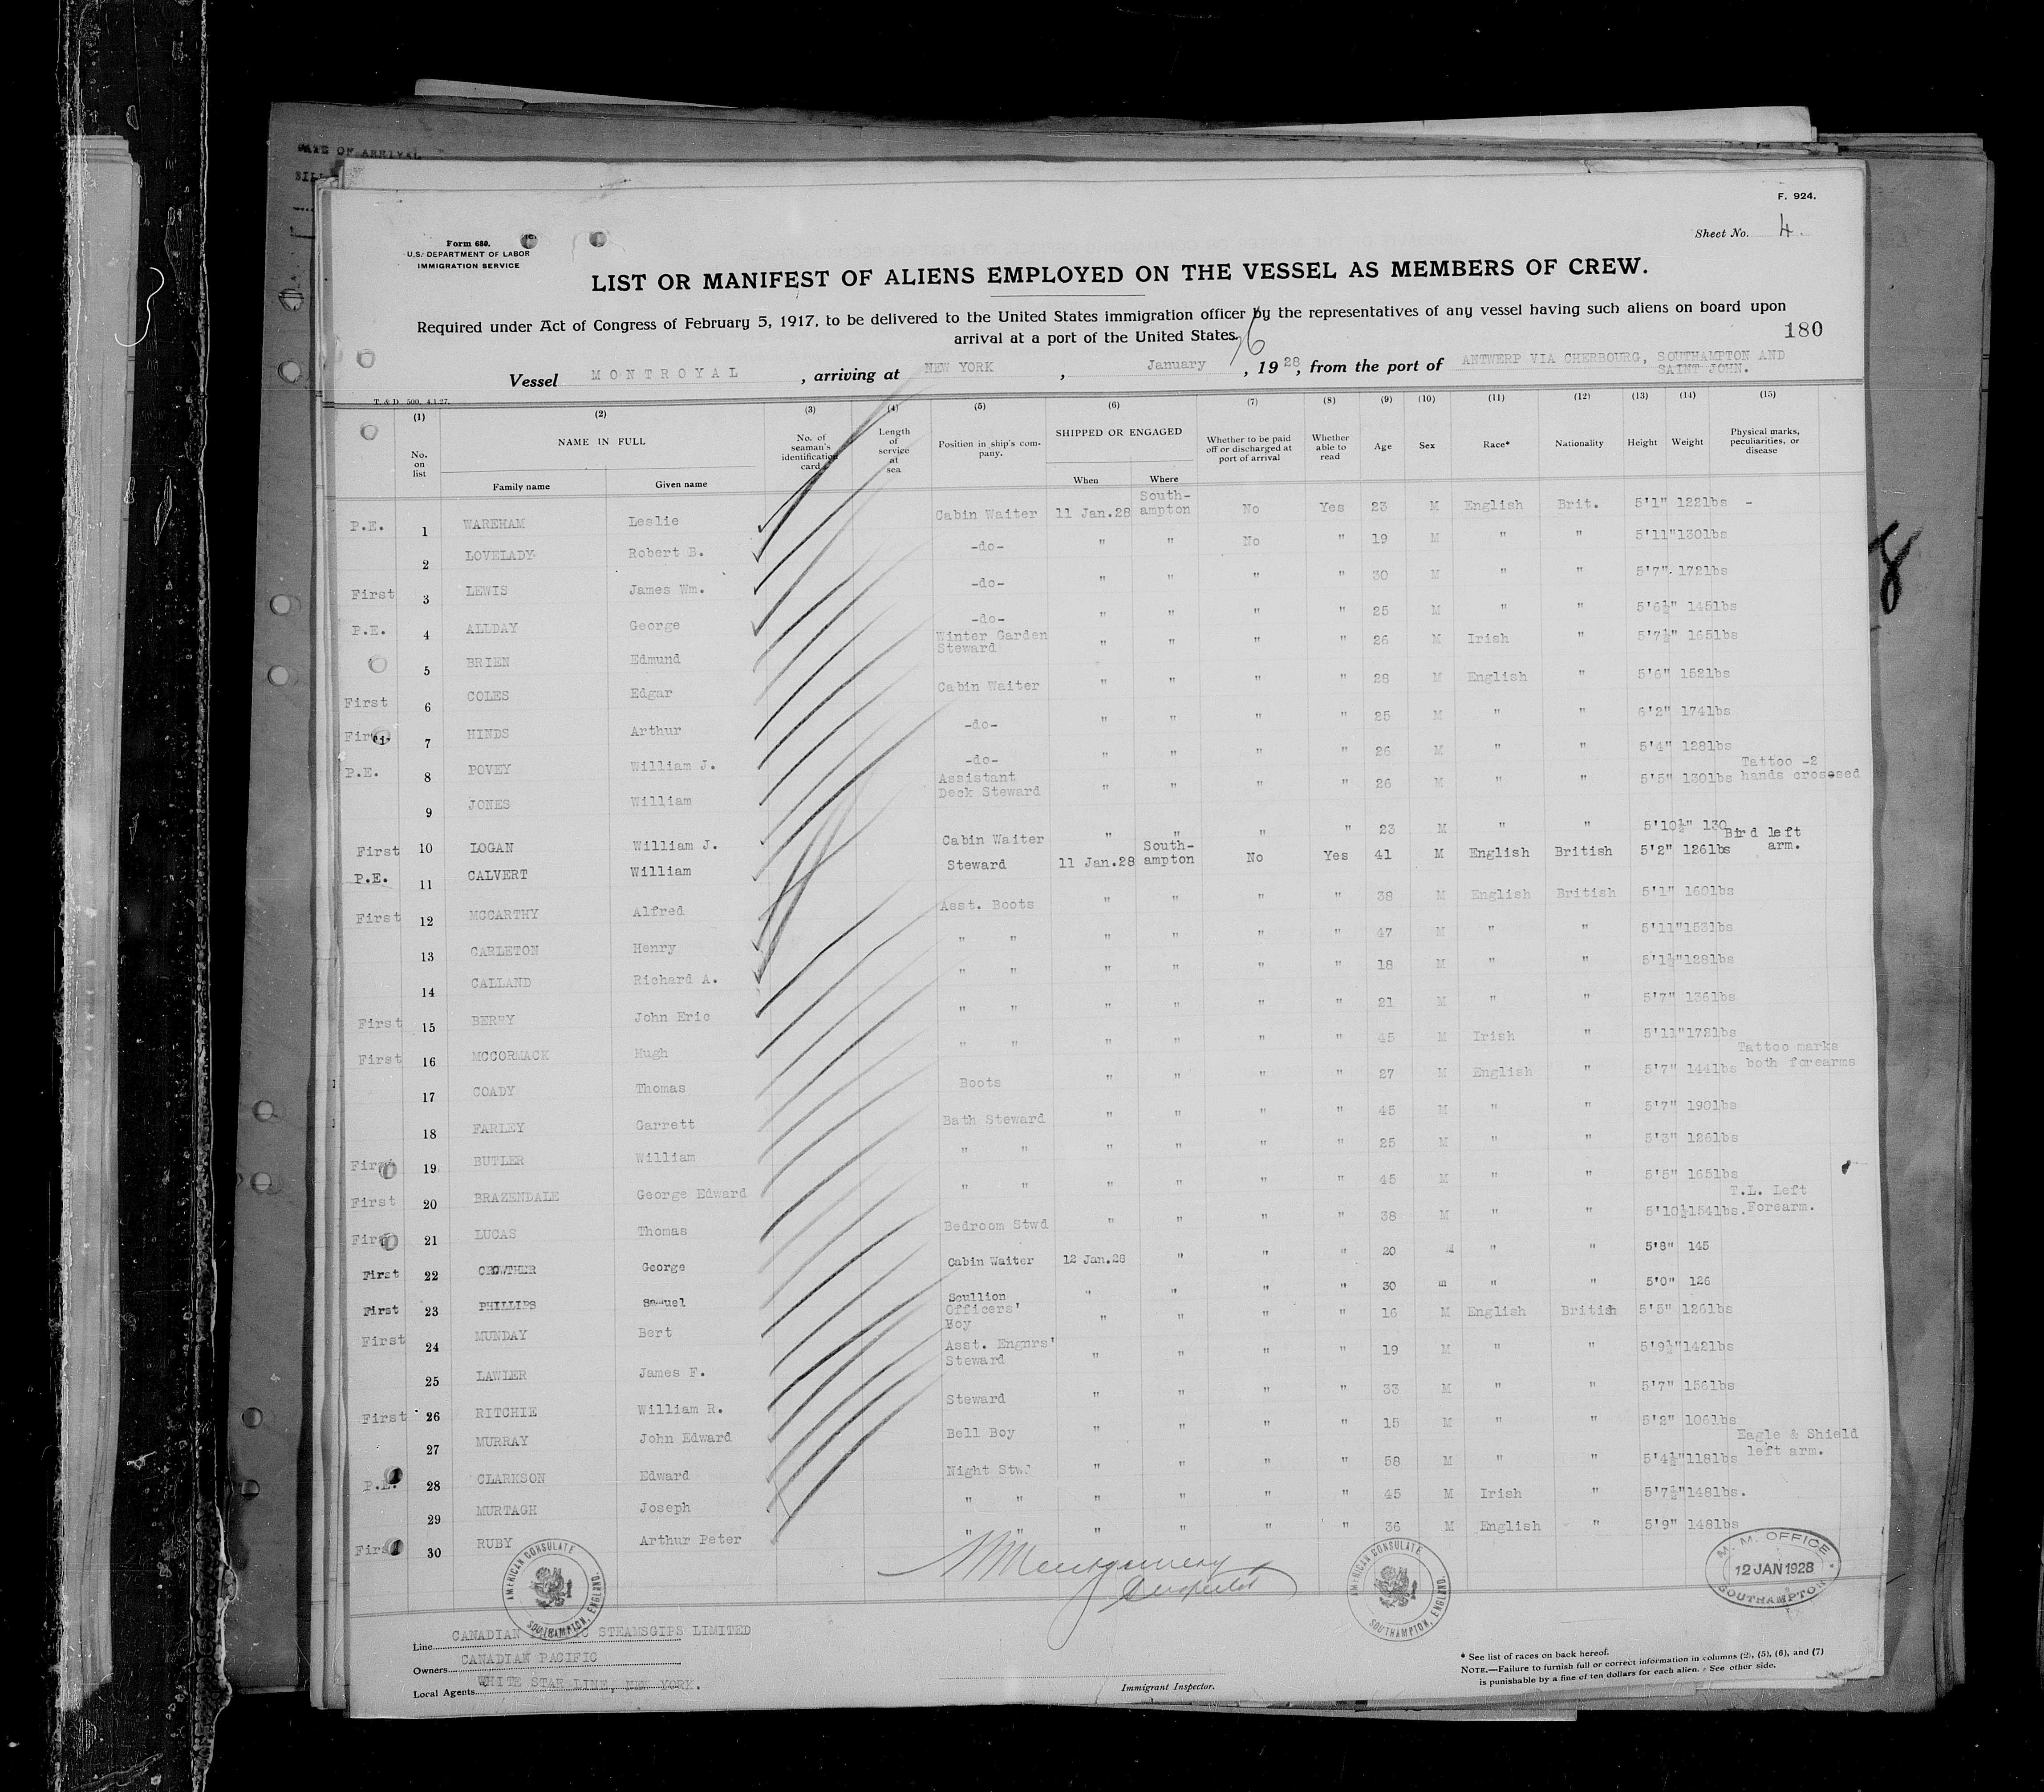 DATE OF ARRIVAL
F. 924.
Sheet No. 4.
Form 680.
U.S. DEPARTMENT OF LABOR
IMMIGRATION SERVICE
LIST OR MANIFEST OF ALIENS EMPLOYED ON THE VESSEL AS MEMBERS OF CREW.
Required under Act of Congress of February 5, 1917, to be delivered to the United States immigration officer by the representatives of any vessel having such aliens on board upon
arrival at a port of the United States.
180
Vessel MONTROYAL, arriving at NEW YORK, January 16, 1928, from the port of ANTWERP VIA CHERBOURG, SOUTHAMPTON AND
SAINT JOHN.
T. & D. 500. 4.1.27.
(1) (2) (3) (4) (5) (6) (7) (8) (9) (10) (11) (12) (13) (14) (15)
No. on list NAME IN FULL Family name Given name No. of seaman's identification card Length of service at sea Position in ship's company. SHIPPED OR ENGAGED When Where Whether to be paid off or discharged at port of arrival Whether able to read Age Sex Race* Nationality Height Weight Physical marks, peculiarities, or disease
P.E. 1 WAREHAM Leslie Cabin Waiter 11 Jan.28 South-ampton No Yes 23 M English Brit. 5'1" 122lbs -
2 LOVELADY Robert B. -do- " " No " 19 M " " 5'11" 130lbs
First 3 LEWIS James Wm. -do- " " " " 30 M " " 5'7". 172lbs
P.E. 4 ALLDAY George -do- " " " " 25 M " " 5'6½" 145lbs
5 BRIEN Edmund Winter Garden Steward " " " " 26 M Irish " 5'7½" 165lbs
First 6 COLES Edgar Cabin Waiter " " " " 28 M English " 5'6" 152lbs
First 7 HINDS Arthur -do- " " " " 25 M " " 6'2" 174lbs
P.E. 8 POVEY William J. -do- " " " " 26 M " " 5'4" 128lbs
9 JONES William Assistant Deck Steward " " " " 26 M " " 5'5" 130lbs Tattoo -2 hands crossesed
First 10 LOGAN William J. Cabin Waiter " " " " 23 M " " 5'10½" 130
P.E. 11 CALVERT William Steward 11 Jan.28 South-ampton No Yes 41 M English British 5'2" 126lbs Bird left arm.
First 12 MCCARTHY Alfred Asst. Boots " " " " 38 M English British 5'1" 160lbs
13 CARLETON Henry " " " " " " 47 M " " 5'11" 153lbs
14 CALLAND Richard A. " " " " " " 18 M " " 5'1½" 128lbs
First 15 BERRY John Eric " " " " " " 21 M " " 5'7" 136lbs
First 16 MCCORMACK Hugh " " " " " " 45 M Irish " 5'11" 172lbs
17 COADY Thomas Boots " " " " 27 M English " 5'7" 144lbs Tattoo marks both forearms
18 FARLEY Garrett Bath Steward " " " " 45 M " " 5'7" 190lbs
First 19 BUTLER William " " " " " " 25 M " " 5'3" 126lbs
First 20 BRAZENDALE George Edward " " " " " " 45 M " " 5'5" 165lbs
First 21 LUCAS Thomas Bedroom Stwd " " " " 38 M " " 5'10½ 154lbs. T.L. Left Forearm.
First 22 CROWTHER George Cabin Waiter 12 Jan.28 " " " 20 M " " 5'8" 145
First 23 PHILLIPS Samuel Scullion " " " " 30 m " " 5'0" 126
First 24 MUNDAY Bert Officers' Boy " " " " 16 M English British 5'5" 126lbs
25 LAWLER James F. Asst. Engnrs' Steward " " " " 19 M " " 5'9½" 142lbs
First 26 RITCHIE William R. Steward " " " " 33 M " " 5'7" 156lbs
27 MURRAY John Edward Bell Boy " " " " 15 M " " 5'2" 106lbs
P.E. 28 CLARKSON Edward Night Stwd " " " " 58 M " " 5'4½" 118lbs Eagle & Shield left arm.
29 MURTAGH Joseph " " " " " " 45 M Irish " 5'7½" 148lbs.
First 30 RUBY Arthur Peter " " " " " " 36 M English " 5'9" 148lbs
8
Montgomery
AMERICAN CONSULATE SOUTHAMPTON, ENGLAND.
AMERICAN CONSULATE SOUTHAMPTON, ENGLAND.
M. M. OFFICE
12 JAN 1928
SOUTHAMPTON
Line CANADIAN PACIFIC STEAMSGIPS LIMITED
Owners CANADIAN PACIFIC
Local Agents WHITE STAR LINE, NEW YORK.
Immigrant Inspector.
* See list of races on back hereof.
NOTE.—Failure to furnish full or correct information in columns (2), (5), (6), and (7)
is punishable by a fine of ten dollars for each alien. See other side.